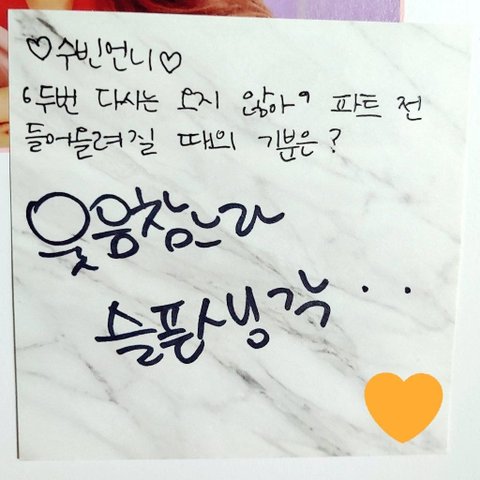 ♡수빈언니♡
'두번 다시는 오지 않아' 파트 전
들어올려질 때의 기분은?
웃음참느라
슬픈생각..